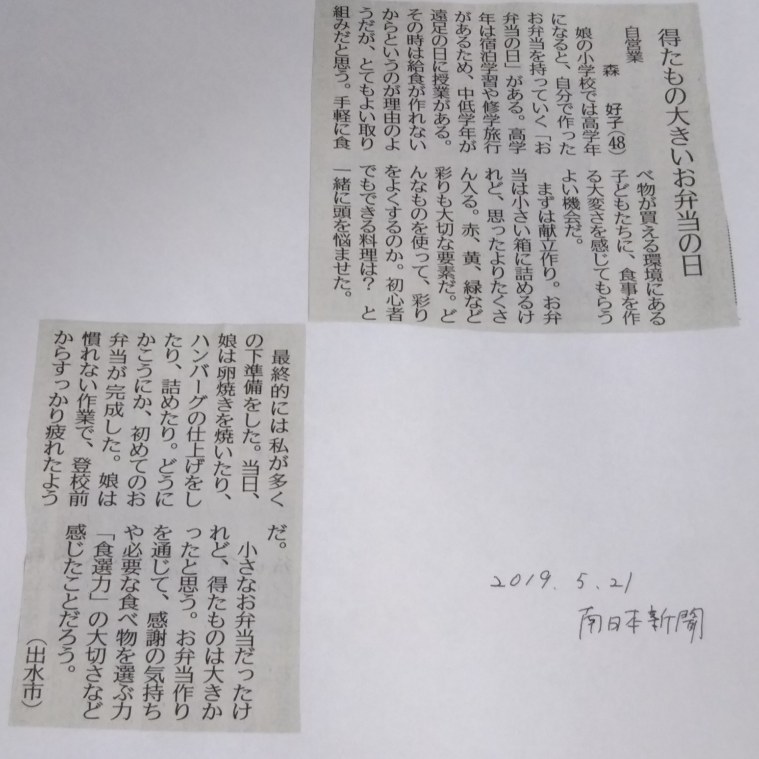 得たもの大きいお弁当の日
自営業
森　好子(48)
娘の小学校では高学年
になると、自分で作った
お弁当を持っていく「お
弁当の日」がある。高学
年は宿泊学習や修学旅行
があるため、中低学年が
遠足の日に授業がある。
その時は給食が作れない
からというのが理由のよ
うだが、とてもよい取り
組みだと思う。手軽に食
べ物が買える環境にある
子どもたちに、食事を作
る大変さを感じてもらう
よい機会だ。
まずは献立作り。お弁
当は小さい箱に詰めるけ
れど、思ったよりたくさ
ん入る。赤、黄、緑など
彩りも大切な要素だ。ど
んなものを使って、彩り
をよくするのか。初心者
でもできる料理は？　と
一緒に頭を悩ませた。
最終的には私が多く
の下準備をした。当日、
娘は卵焼きを焼いたり、
ハンバーグの仕上げをし
たり、詰めたり。どうに
かこうにか、初めてのお
弁当が完成した。娘は
慣れない作業で、登校前
からすっかり疲れたよう
だ。
小さなお弁当だったけ
れど、得たものは大きか
ったと思う。お弁当作り
を通じて、感謝の気持ち
や必要な食べ物を選ぶ力
「食選力」の大切さなど
感じたことだろう。
（出水市）
2019.5.21
南日本新聞